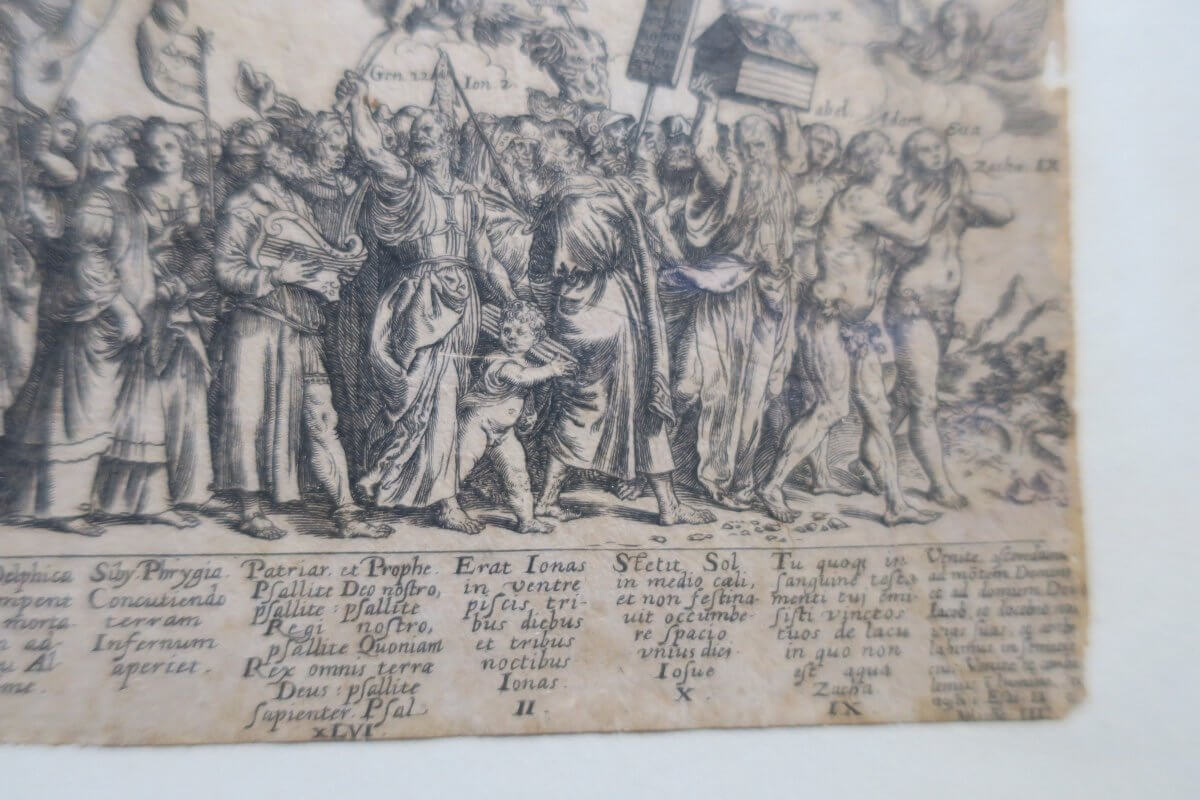 Gen. 22
Ion. 2.
abel
Adam
Eua
Zacha. IX
Delphica
ad
Al
Siby. Phrygia.
Concutiendo
terram
Infernum
aperiet.
Patriar. et Prophe.
Psallite Deo nostro,
psallite: psallite
Regi nostro,
psallite Quoniam
Rex omnis terræ
Deus: psallite
sapienter. Psal.
XLVI
Erat Ionas
in ventre
piscis tri-
bus diebus
et tribus
noctibus.
Ionas.
II.
Stetit Sol
in medio cæli,
et non festina-
uit occumbe-
re spacio
vnius diei.
Iosue
X.
Tu quoq; in
sanguine testa
menti tui emi-
sisti vinctos
tuos de lacu
in quo non
est aqua
Zacha
IX
Venite, ascendamus
ad motem Domini
et ad domum Dei
Iacob, et
vias suas, et